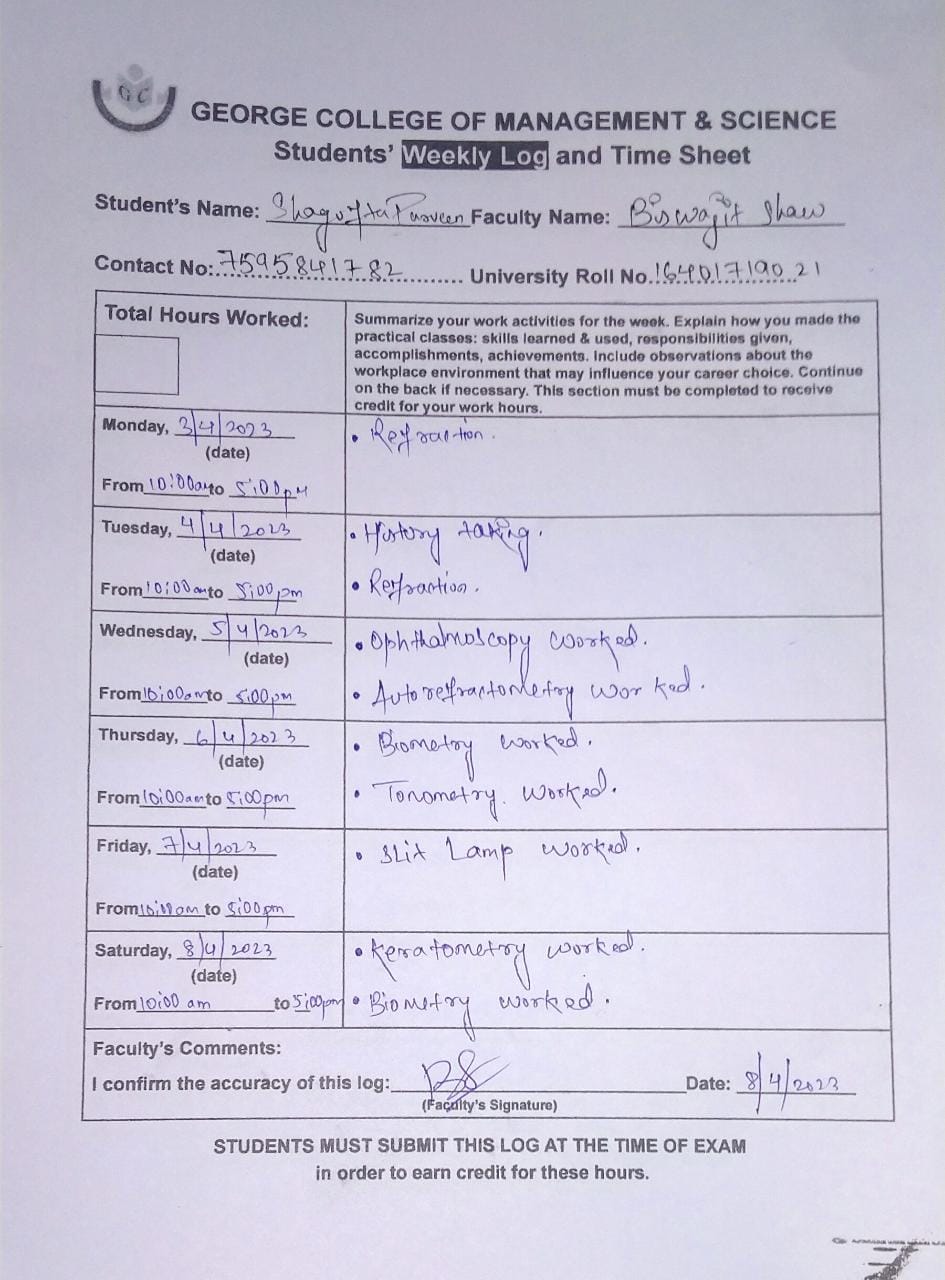 GC
GEORGE COLLEGE OF MANAGEMENT & SCIENCE
Students' Weekly Log and Time Sheet
Student's Name: Shagufta Parveen Faculty Name: Biswajit Shaw
Contact No: 7595841782 University Roll No. 16401719021
Total Hours Worked:
Summarize your work activities for the week. Explain how you made the
practical classes: skills learned & used, responsibilities given,
accomplishments, achievements. Include observations about the
workplace environment that may influence your career choice. Continue
on the back if necessary. This section must be completed to receive
credit for your work hours.
Monday, 3/4/2023
(date)
From 10:00am to 5:00pm
• Refraction.
Tuesday, 4/4/2023
(date)
From 10:00am to 5:00pm
• History taking.
• Refraction.
Wednesday, 5/4/2023
(date)
From 10:00am to 5:00pm
• Ophthalmoscopy worked.
• Autorefractometry worked.
Thursday, 6/4/2023
(date)
From 10:00am to 5:00pm
• Biometry worked.
• Tonometry. Worked.
Friday, 7/4/2023
(date)
From 10:00am to 5:00pm
• Slit Lamp worked.
Saturday, 8/4/2023
(date)
From 10:00 am to 5:00pm
• Keratometry worked.
• Biometry worked.
Faculty's Comments:
I confirm the accuracy of this log: Date: 8/4/2023
(Faculty's Signature)
STUDENTS MUST SUBMIT THIS LOG AT THE TIME OF EXAM
in order to earn credit for these hours.